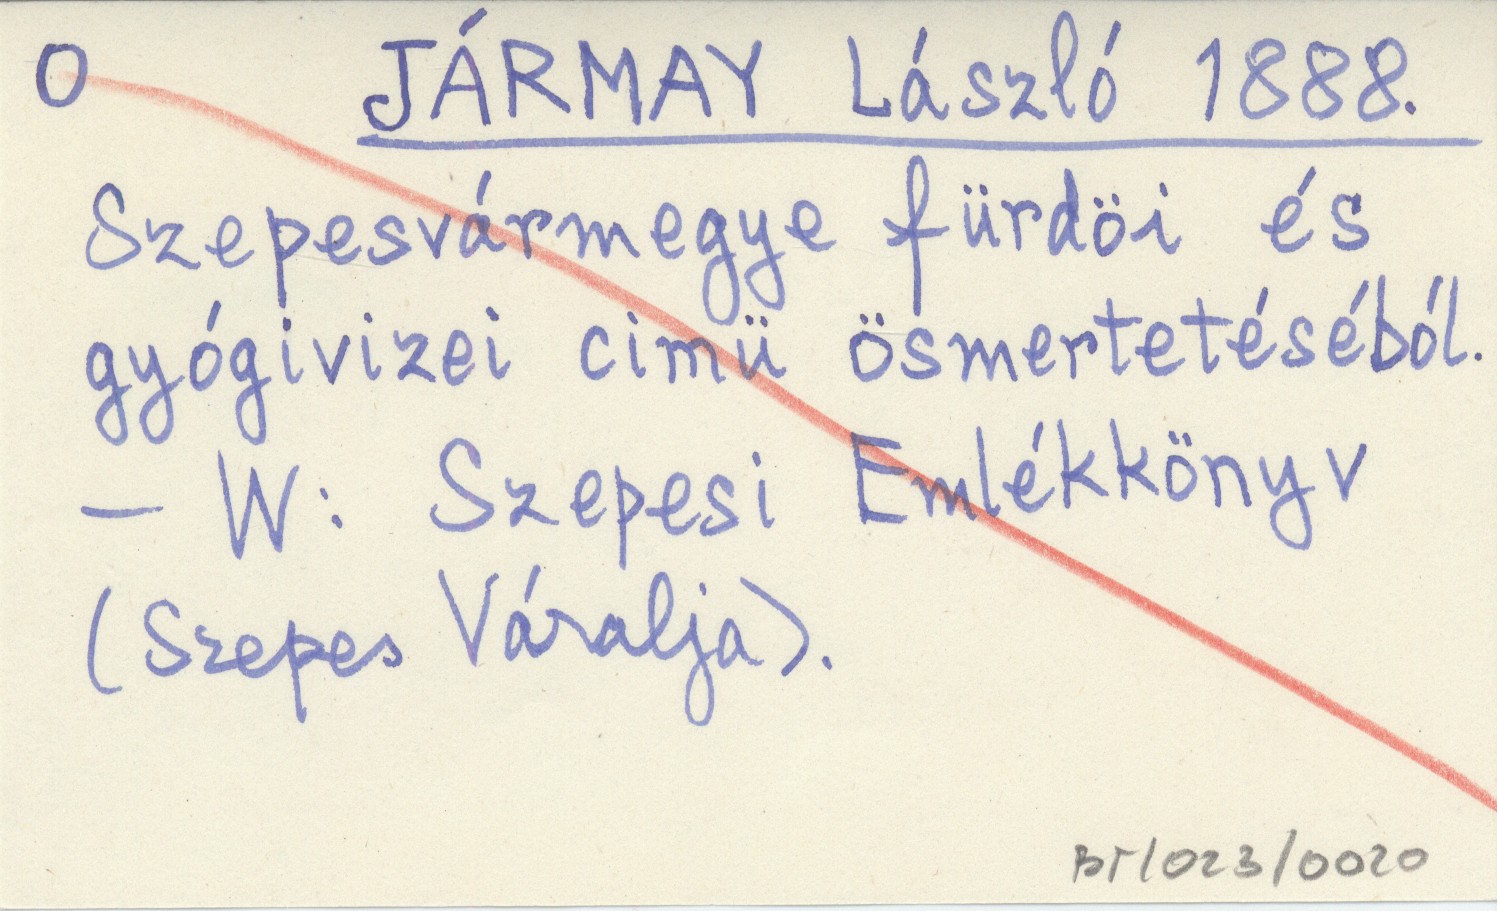 O JÁRMAY László 1888.
Szepesvármegye fürdöi és
gyógivizei cimü ösmertetéséből.
– W: Szepesi Emlékkönyv
(Szepes Váralja).
BT/023/0020